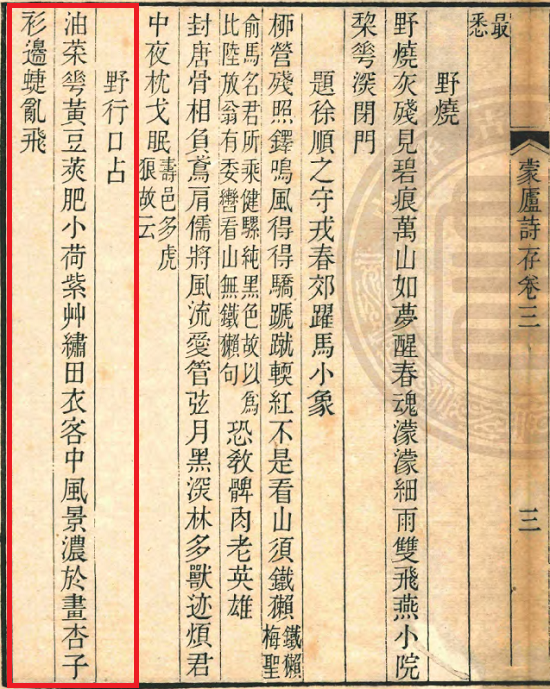 蒙廬詩存卷三
三
最
悉
野燒
野燒灰殘見碧痕萬山如夢醒春魂濛濛細雨雙飛燕小院
棃蕐深閉門
題徐順之守戎春郊躍馬小象
桺營殘照鐸鳴風得得驕蹏蹴輭紅不是看山須鐵獺鐵獺梅聖
俞馬名君所乘健騾純黑色故以爲比陸放翁有委轡看山無鐵獺句恐敎髀肉老英雄
封唐骨相負鳶肩儒將風流愛管弦月黑深林多獸迹煩君
中夜枕戈眠壽邑多虎狼故云
野行口占
油菜蕐黃豆莢肥小荷紫艸繡田衣客中風景濃於畫杏子
衫邊蜨亂飛